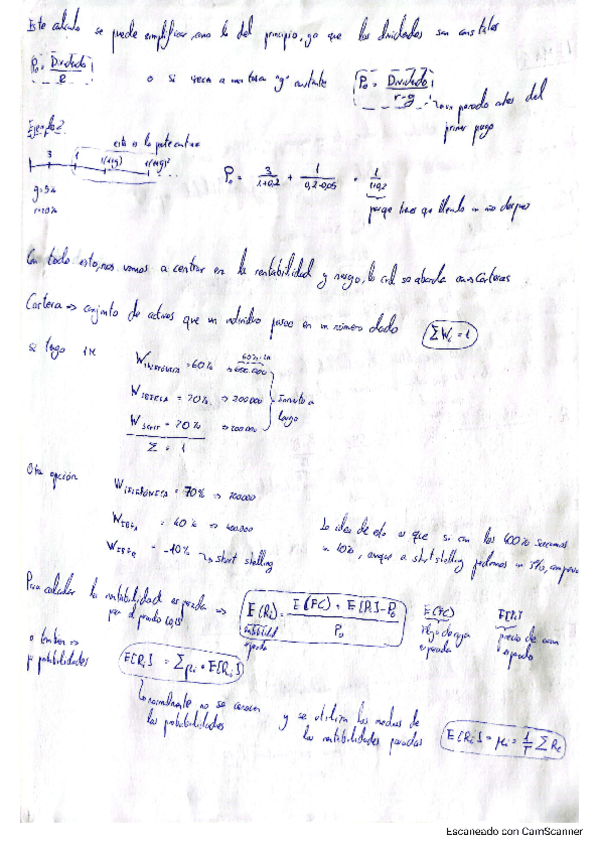 Este calculo se puede simplificar, como lo del principio, ya que los dividendos son constantes
P₀ = Dividendo₁ / R o si creca a una tasa "g" constante P₀ = Dividendo₁ / r-g
un periodo antes del
primer pago
Ejemplo 2
esto es lo
3 1 1(1+g) 1(1+g)²
g=5%
r=20%
P₀ = 3/1+0,2 + 1/0,2-0,05 · 1/1+0,2
porque tienes que un año despues
Con todo esto, nos vamos a centrar en la rentabilidad y riesgo, lo cual se aborda con carteras
Cartera => conjunto de activos que un individuo posee en un número dado ΣWᵢ = 1
si tengo 1M
W = 60% => 600.000
60% · 1M
W = 20% => 200000
W = 20% => 200000
Σ = 1
Inversión a
largo
Otra opción
W = 70% => 700000
W = 40% => 400.000
W = -10% short selling
La idea de esto es que si con los 400% sacamos
un 10%, aunque a short selling perdamos un 5%,
Para calcular la rentabilidad esperada =>
por el periodo
E(Rᵢ) = E(FC) + E[P₁] - P₀ / P₀
rentabilidad
esperada
E(FC)
flujo de caja
esperado
E[P₁]
precio de
esperado
o tambien =>
probabilidades
E[Rᵢ] = Σpᵢ · E[Rᵢ]
normalmente no se conocen
las probabilidades
y se utiliza las medias de
las rentabilidades pasadas
E[Rᵢ] = μᵢ = 1/T Σ Rₜ
Escaneado con CamScanner